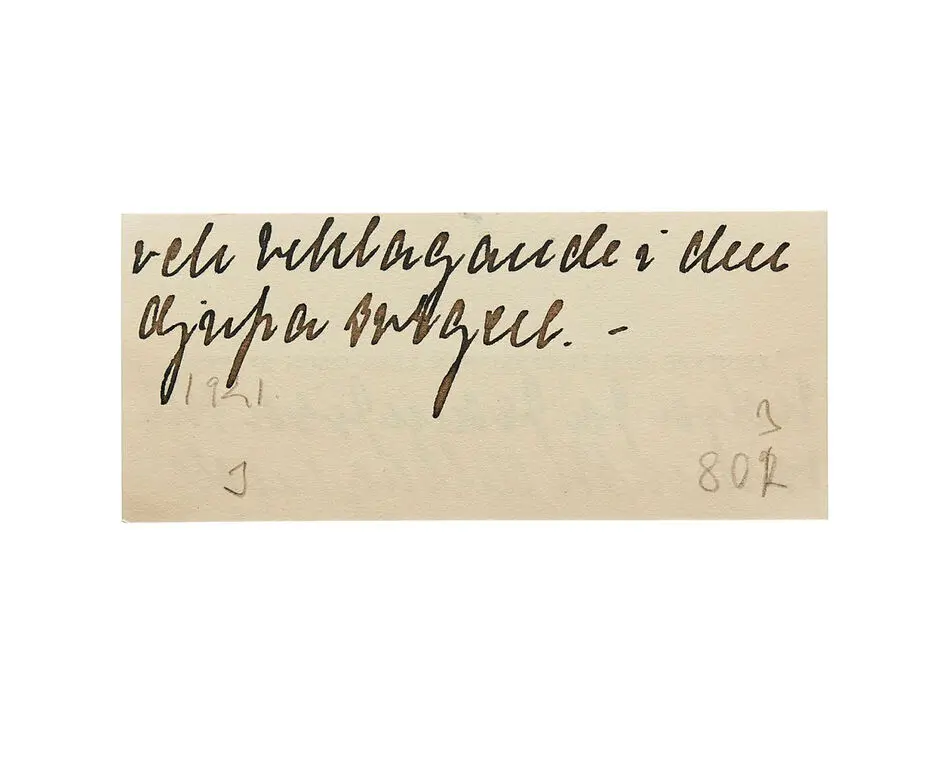 och beklagande i den
djupa sorgen. –
1921.
3
J 80